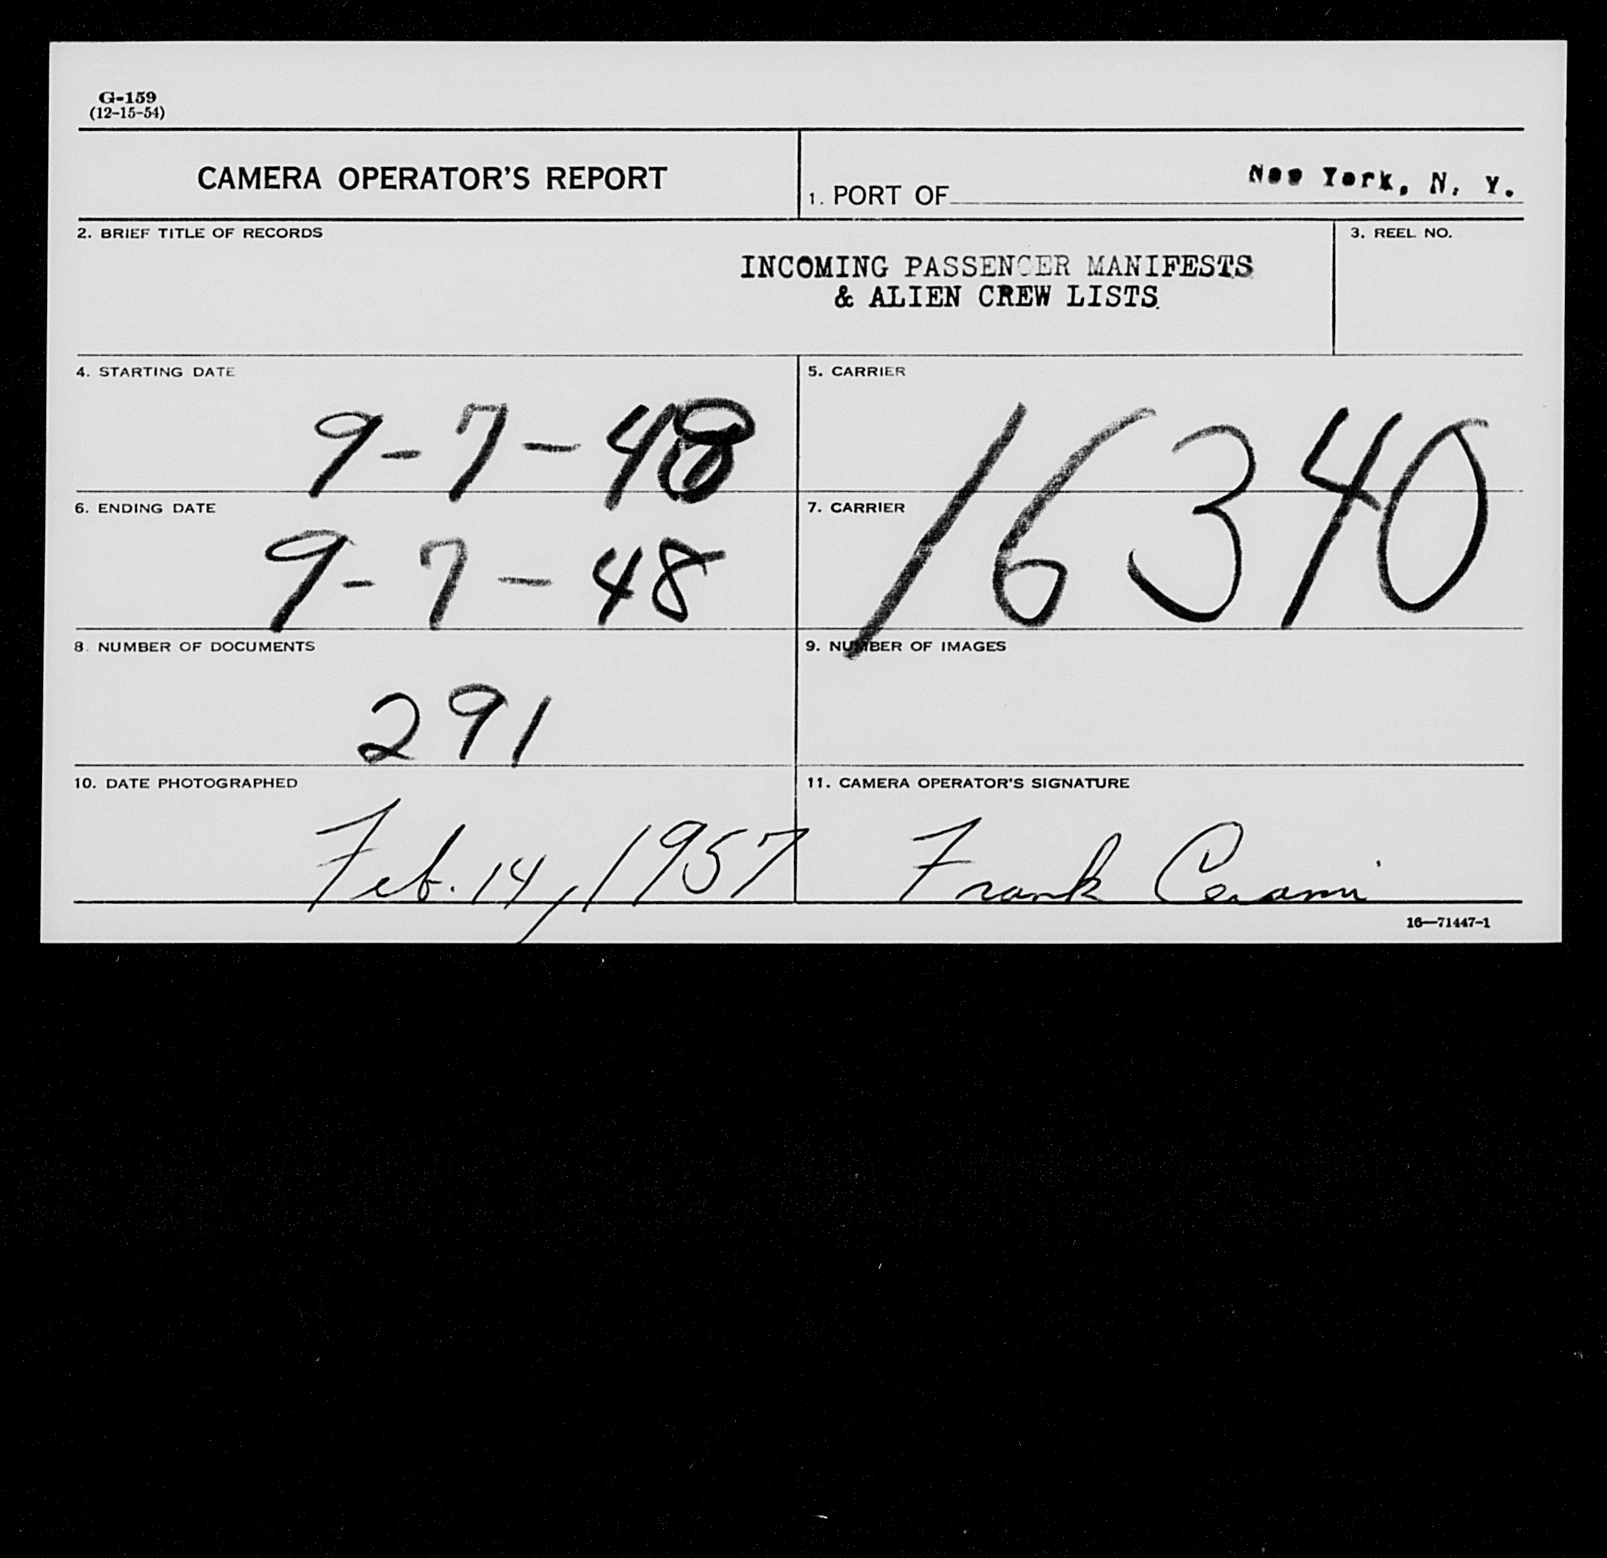 G-159
(12-15-54)
CAMERA OPERATOR'S REPORT
1. PORT OF New York, N. Y.
2. BRIEF TITLE OF RECORDS
INCOMING PASSENGER MANIFESTS
& ALIEN CREW LISTS.
3. REEL NO.
4. STARTING DATE
9-7-48
5. CARRIER
16340
6. ENDING DATE
9-7-48
7. CARRIER
8. NUMBER OF DOCUMENTS
291
9. NUMBER OF IMAGES
10. DATE PHOTOGRAPHED
Feb. 14, 1957
11. CAMERA OPERATOR'S SIGNATURE
Frank Cerami
16—71447-1